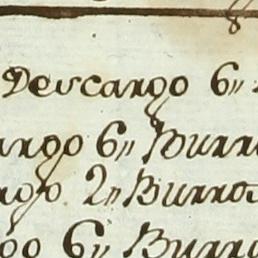 Descargo 6,,
argo 6,, Burr
rgo. 2,, Burro
go 6,, Burr